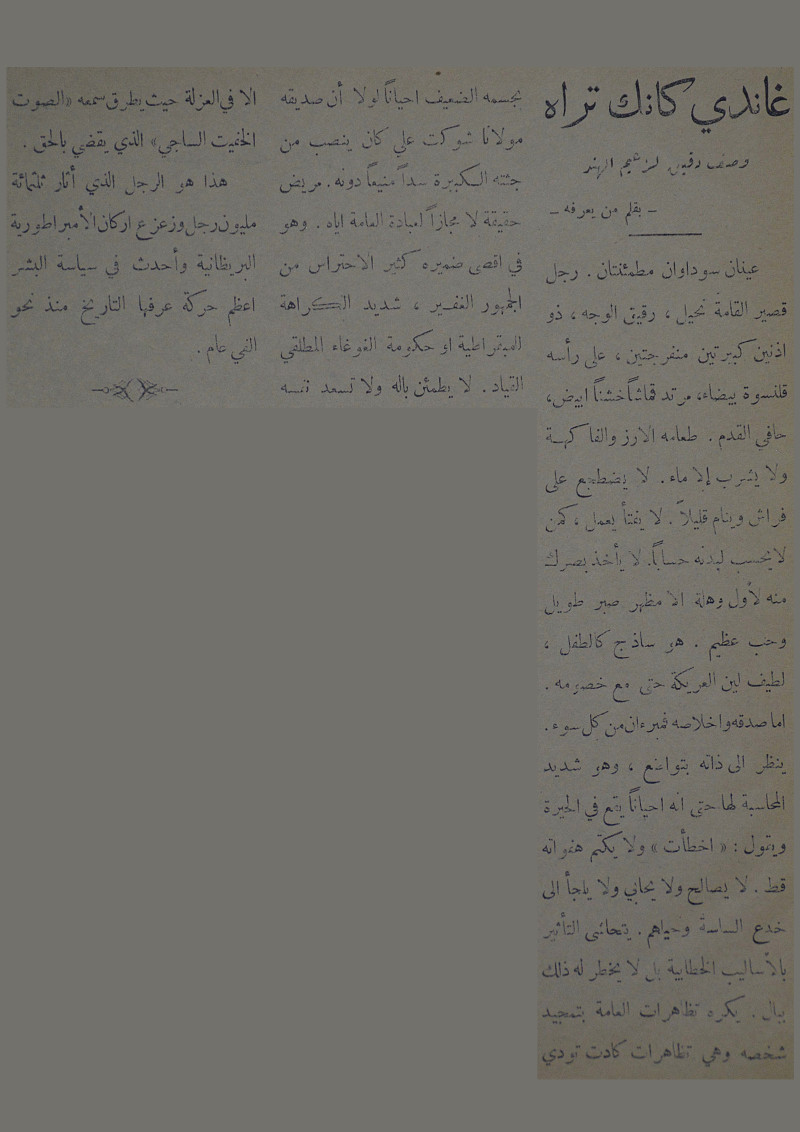 غاندي كانك تراه
وصف دقيق لزعيم الهند
— بقلم من يعرفه —
عينان سوداوان مطمئنتان . رجل
قصير القامة نحيل ، رقيق الوجه ، ذو
اذنين كبيرتين منفرجتين ، على رأسه
قلنسوة بيضاء، مرتد قماشاً خشناً ابيض،
حافي القدم . طعامه الارز والفاكهة
ولا يشرب إلا ماء . لا يضطجع على
فراش وينام قليلاً . لا يفتأ يعمل ، كمن
لا يحسب لبدنه حساباً. لا يأخذ بصرك
منه لأول وهلة الا مظهر صبر طويل
وحب عظيم . هو ساذج كالطفل ،
لطيف لين العريكة حتى مع خصومه .
اما صدقه واخلاصه فمبرءان من كل سوء .
ينظر الى ذاته بتواضع ، وهو شديد
المحاسبة لها حتى انه احياناً يقع في الحيرة
ويقول : « اخطأت » ولا يكتم هفواته
قط . لا يصالح ولا يحابي ولا يلجأ الى
خدع الساسة وحيلهم . يتحاشى التأثير
بالأساليب الخطابية بل لا يخطر له ذلك
ببال . يكره تظاهرات العامة بتمجيد
شخصه وهي تظاهرات كادت تودي
بجسمه الضعيف احياناً لولا أن صديقه
مولانا شوكت علي كان ينصب من
جثته الكبيرة سداً منيعاً دونه . مريض
حقيقة لا مجازاً لعبادة العامة اياه . وهو
في اقصى ضميره كثير الاحتراس من
الجمهور الغفير ، شديد الكراهة
للميقراطية او حكومة الغوغاء المطلقي
القياد . لا يطمئن باله ولا تسعد نفسه
الا في العزلة حيث يطرق سمعه «الصوت
الخفيت الساجي» الذي يقضي بالحق .
هذا هو الرجل الذي أثار ثلثمائة
مليون رجل وزعزع اركان الأمبراطورية
البريطانية وأحدث في سياسة البشر
اعظم حركة عرفها التاريخ منذ نحو
الفي عام .